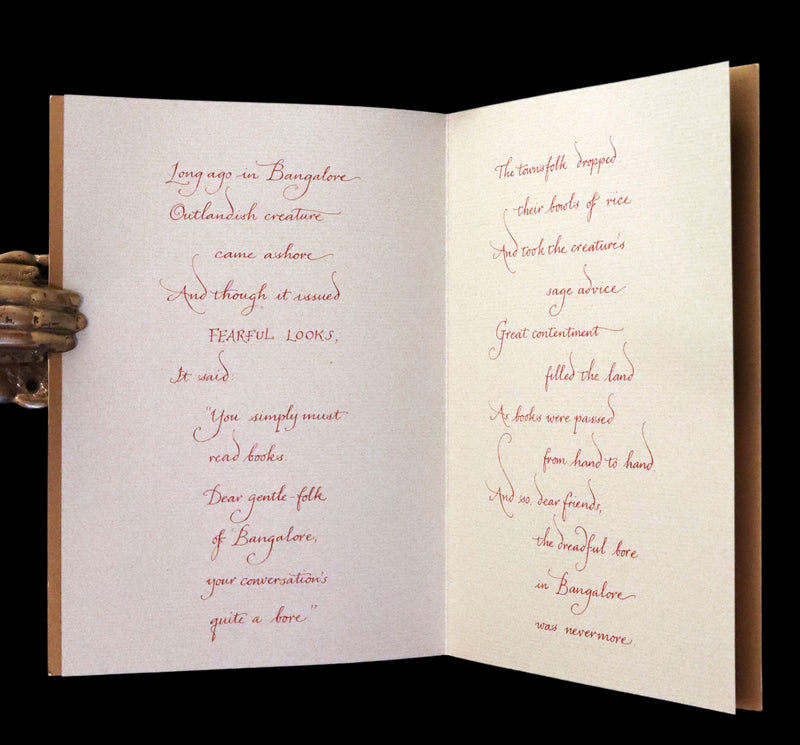 Long ago in Bangalore
Outlandish creature
came ashore.
And though it issued
FEARFUL LOOKS,
It said:
"You simply must
read books.
Dear gentle-folk
of Bangalore,
your conversation's
quite a bore"
The townsfolk dropped
their bowls of rice
And took the creature's
sage advice.
Great contentment
filled the land
As books were passed
from hand to hand.
And so, dear friends,
the dreadful bore
in Bangalore
was nevermore.